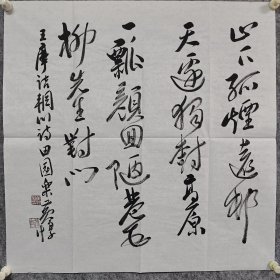 山下孤烟遠村
天邊獨樹高原
一瓢顏回陋巷五
柳先生對門
王摩詰輞川詩田園樂